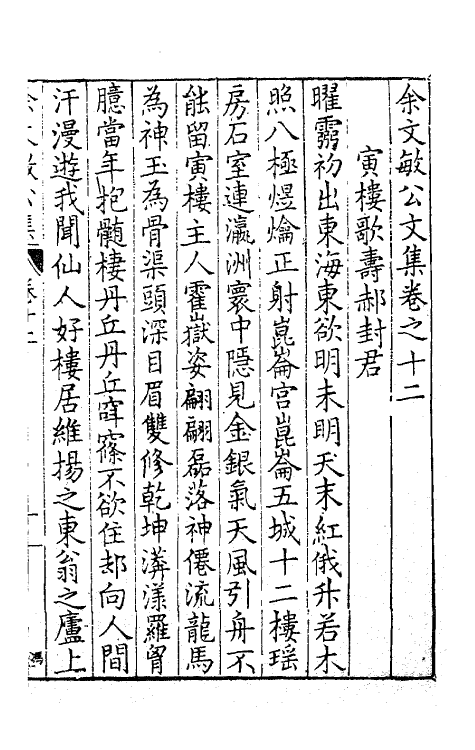 余文敏公文集卷之十二
寅樓歌壽郝封君
曜靈初出東海東欲明未明天末紅俄升若木
照八極煜爚正射崑崙宮崑崙五城十二樓瑶
房石室連瀛洲寰中隱見金銀氣天風引舟不
能留寅樓主人霍嶽姿翩翩磊落神僊流龍馬
為神玉為骨渠頭深目眉雙修乾坤漭漾羅胷
臆當年抱髄棲丹丘丹丘窙窱不欲住却向人間
汗漫遊我聞仙人好樓居維揚之東翁之廬上
余文敏公集
卷十二
一